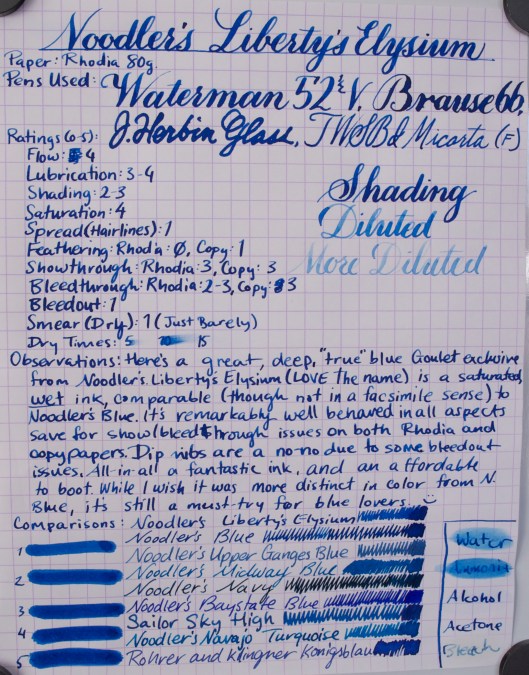 Noodler's Liberty's Elysium
Paper: Rhodia 80g.
Pens Used: Waterman 52½ V, Brause 66,
J. Herbin Glass, TWSBI Micarta (F)
Ratings (0-5):
Flow: 4
Lubrication: 3-4
Shading: 2-3
Saturation: 4
Spread (Hairlines): 1
Feathering: Rhodia: 0, Copy: 1
Showthrough: Rhodia: 3, Copy: 3
Bleedthrough: Rhodia: 2-3, Copy: 3
Bleedout: 1
Smear (Dry): 1 (Just Barely)
Dry Times: 5 10 15
Shading
Diluted
More Diluted
Observations: Here's a great, deep, "true" blue Goulet exclusive
from Noodler's. Liberty's Elysium (LOVE the name) is a saturated,
wet ink, comparable (though not in a facsimile sense) to
Noodler's Blue. It's remarkably well behaved in all aspects
save for show/bleedthrough issues on both Rhodia and
copypapers. Dip nibs are a no-no due to some bleedout
issues. All-in-all a fantastic ink, and an affordable
to boot. While I wish it was more distinct in color from N.
Blue, it's still a must-try for blue lovers...
Comparisons: Noodler's Liberty's Elysium
1 Noodler's Blue
Noodler's Upper Ganges Blue
2 Noodler's Midway Blue
Noodler's Navy
3 Noodler's Baystate Blue
Sailor Sky High
4 Noodler's Navajo Turquoise
5 Rohrer and Klingner Konigsblau
Water
Ammonia
Alkohol
Acetone
Bleach